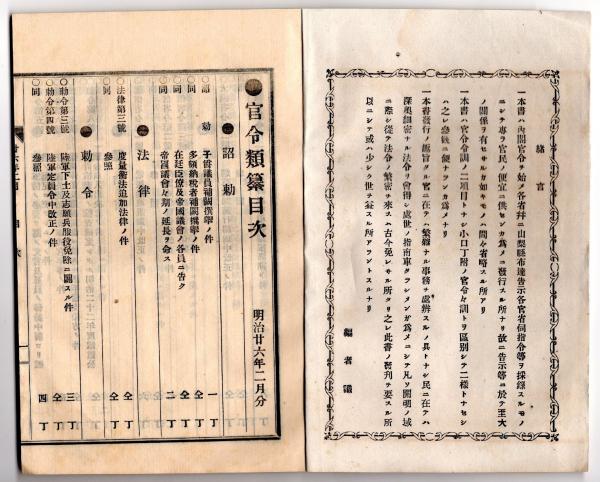 緒言
一本書ハ內閣官令ヲ始メ各省幷ニ山梨縣布達告示各官省伺指令等ヲ採錄スルモノ
ニシテ專ヲ官民ノ便宜ニ供センカ爲メニ發行スル所ナリ故ニ告示等ニ於テ至大
ノ關係ヲ有セサルカ如キモノハ間々省略スル所アリ
一本書ハ官令令訓ノ二項目トナシ小口丁附ノ官令々訓トヲ區別シテ二樣トナセシ
ハ之レ參
一本書發行ノ趣旨タル官ニ在テハ繁縟ナル事務ヲ處辨スルノ具トナシ民ニ在テハ
深奧細密ナル法令ヲ會得シ處世ノ指南車タラシメンガ爲メニシテ凡ソ開明ノ域
ニ際シ從テ法令ノ繁密ヲ來スハ古今免レサル所タリ之レ此書ノ發刊ヲ要スル所
以ニシテ或ハ少シク世ニ益スル所アラントスルナリ
編者識
官令類纂目次
明治廿六年二月分
詔勅
○詔勅 子爵議員補闕選擧ノ件 一丁
○同 多額納稅者補闕選擧ノ件 仝丁
○同 在廷臣僚及帝國議會ノ各員ニ告ク 仝丁
○同 帝國議會會期ノ延長ヲ命ス 二丁
法律
○法律第三號 度量衡法追加法律ノ件 仝丁
同 參照 仝丁
勅令
○勅令第三號 陸軍下士及志願兵服役免除ニ關スル件 三丁
○勅令第四號 陸軍定員令中改正ノ件 仝丁
○同 參照 四丁